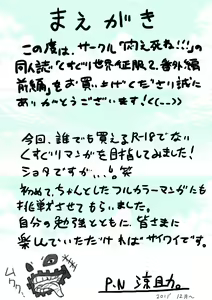 まえがき
この度は、サークル「悶え死ね!!!」の
同人誌「くすぐり世界征服2、番外編
前編」をお買い上げくださり誠に
ありがとうございます!<(_ _)>
今回、誰でも買えるR-18でない
くすぐりマンガを目指してみました!
ショタですが…。笑
初めて、ちゃんとしたフルカラーマンガにも
挑戦させてもらいました。
自分の勉強とともに、皆さまに
楽しんでいただければサイワイです。
P.N 涼助。